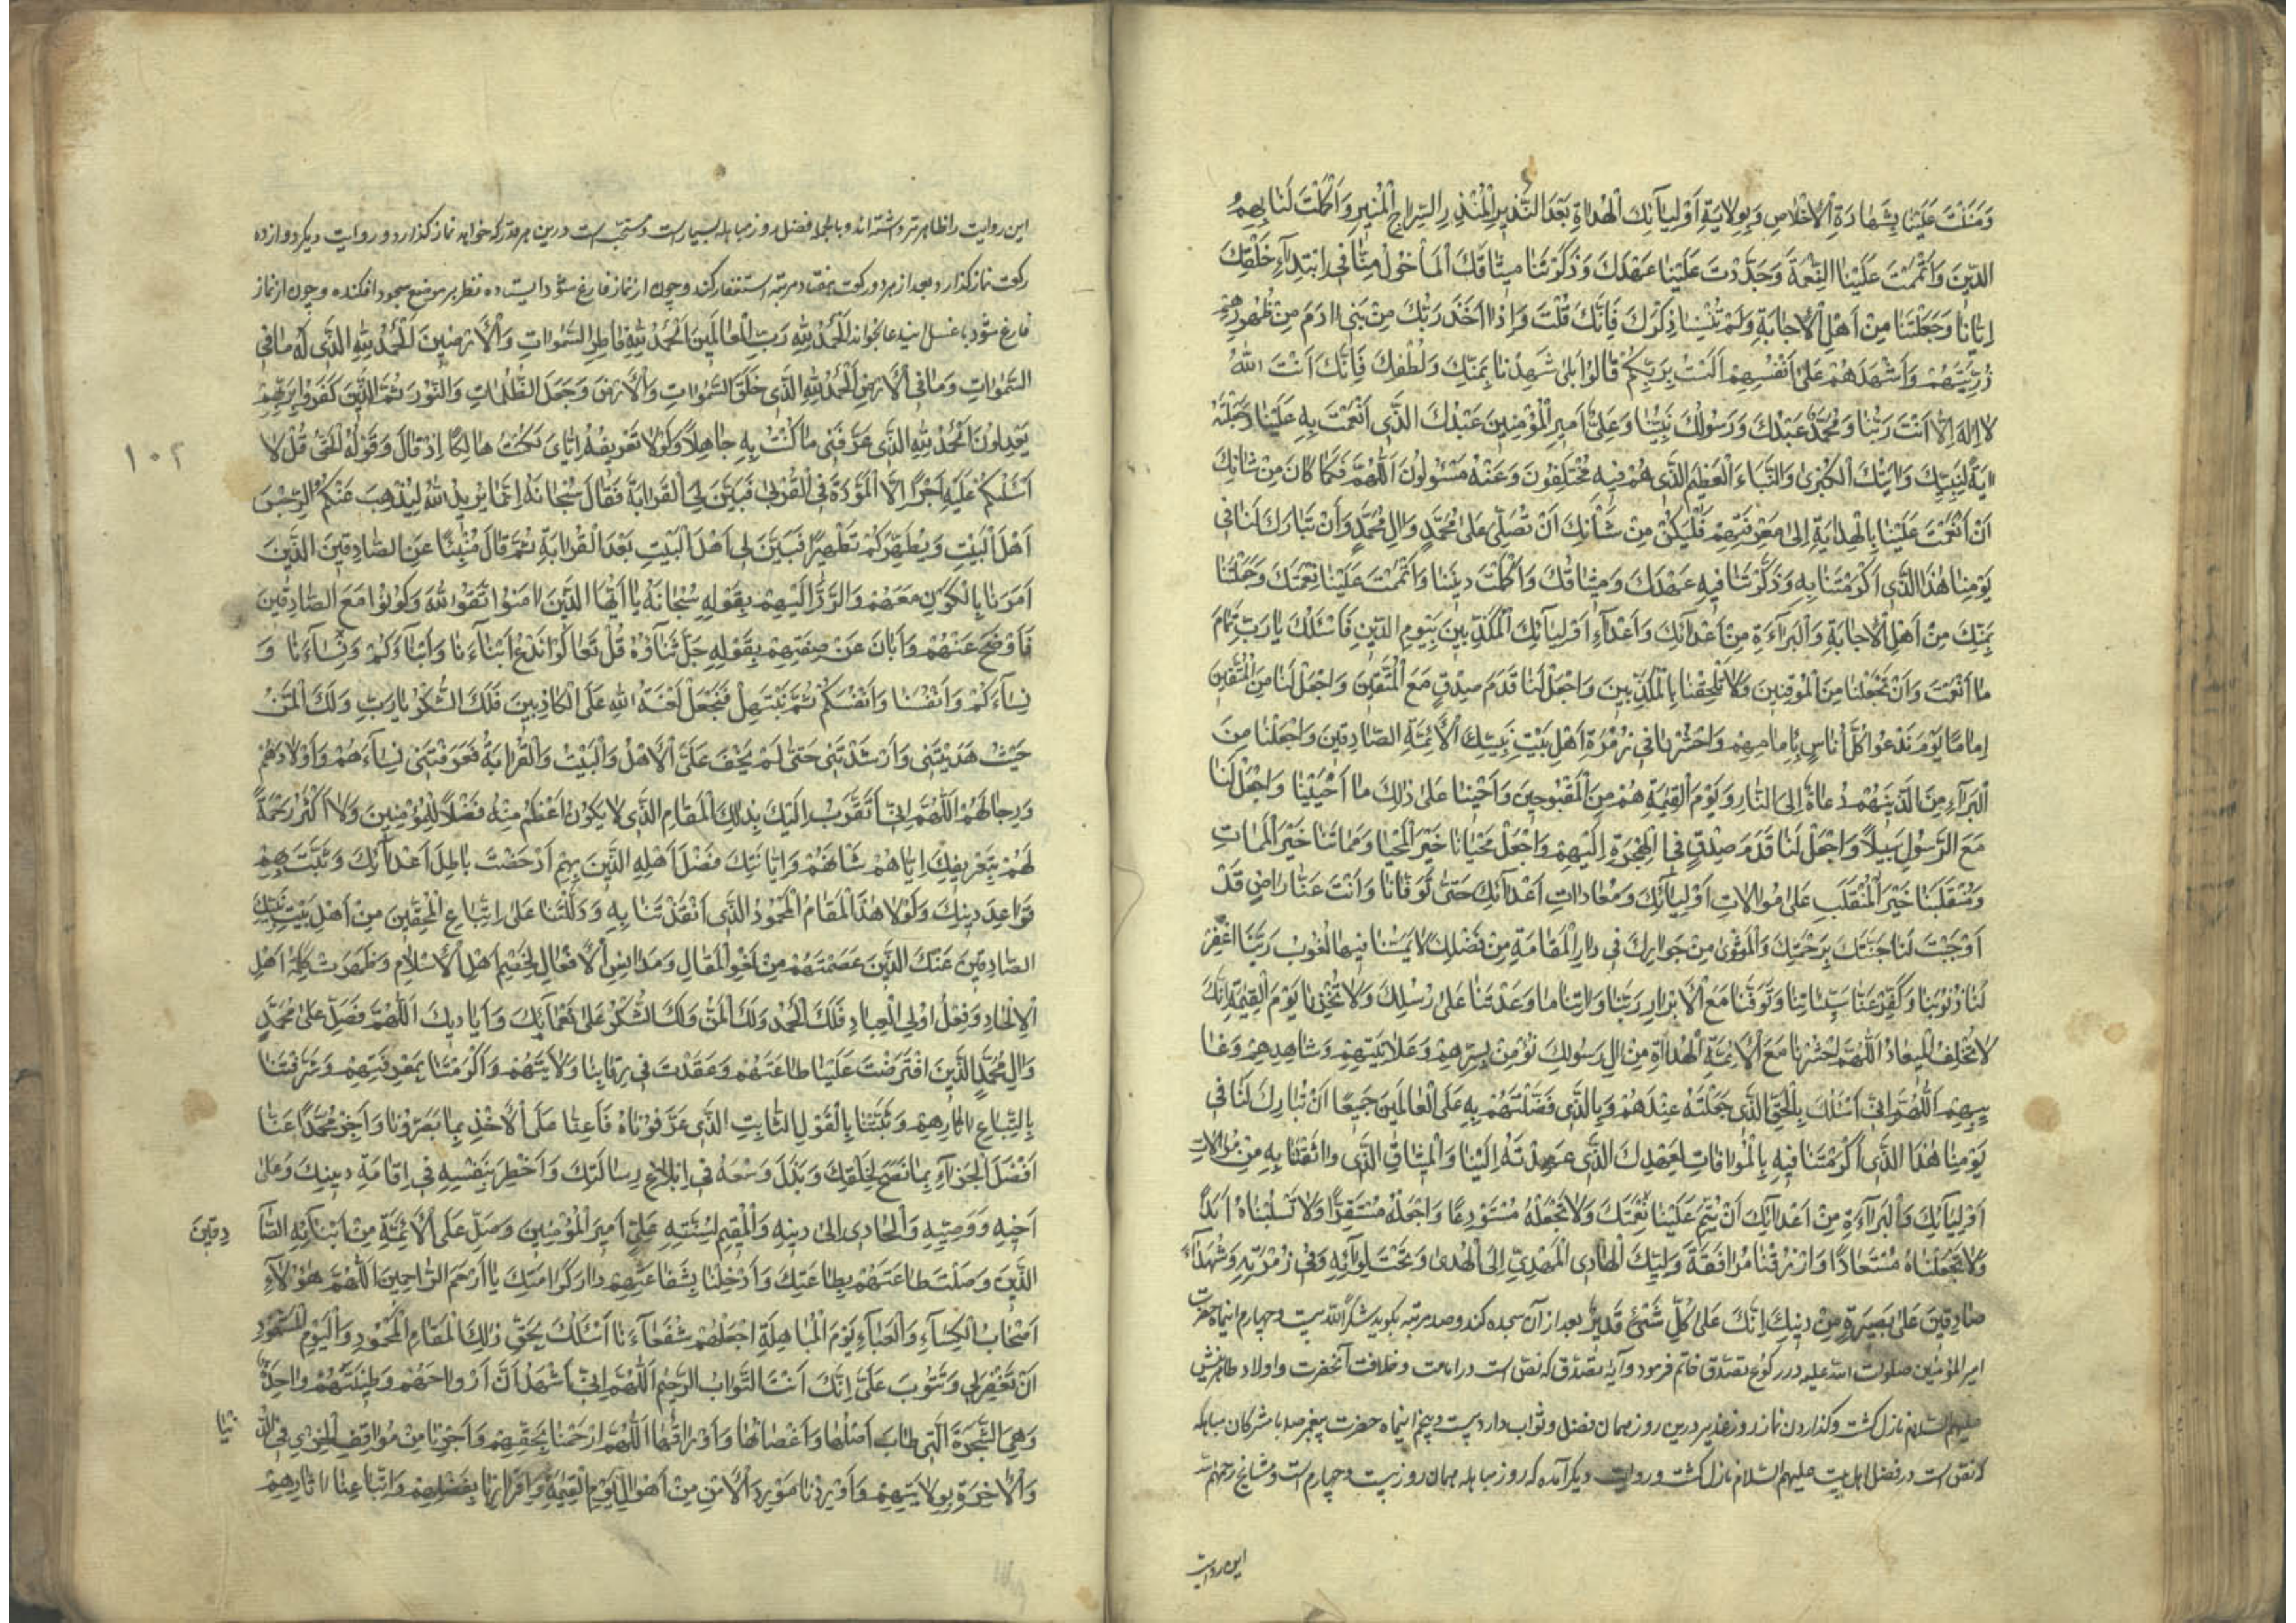 وَمَنَنْتَ عَلَيْنا بِشَهادَةِ الْاِخْلاصِ وَبِوِلايَةِ اَوْلِيآئِكَ الْهُداةِ بَعْدَ النَّذيرِ الْمُنْذِرِ السِّراجِ الْمُنيرِ وَاَكْمَلْتَ لَنا بِهِمُ
الدّينَ وَاَتْمَمْتَ عَلَيْنَا النِّعْمَةَ وَجَدَّدْتَ عَلَيْنا عَهْدَكَ وَذَكَّرْتَنا ميثاقَكَ الْمَاْخُوذَ مِنّا فِى ابْتِدآءِ خَلْقِكَ
اِيّانا وَجَعَلْتَنا مِنْ اَهْلِ الْاِجابَةِ وَلَمْ تُنْسِنا ذِكْرَكَ فَاِنَّكَ قُلْتَ وَاِذْ اَخَذَ رَبُّكَ مِنْ بَنى ادَمَ مِنْ ظُهُورِهِمْ
ذُرِّيَّتَهُمْ وَاَشْهَدَهُمْ عَلى اَنْفُسِهِمْ اَلَسْتُ بِرَبِّكُمْ قالُوا بَلى شَهِدْنا بِمَنِّكَ وَلُطْفِكَ فَاِنَّكَ اَنْتَ اللهُ
لا اِلهَ اِلّا اَنْتَ رَبُّنا وَمُحَمَّدٌ عَبْدُكَ وَرَسُولُكَ نَبِيُّنا وَعَلِىٌّ اَميرِ الْمُؤْمِنينَ عَبْدُكَ الَّذى اَنْعَمْتَ بِهِ عَلَيْنا وَجَعَلْتَهُ
ايَةً لِنَبِيِّكَ وَايَتَكَ الْكُبْرى وَالنَّبَاءَ الْعَظيمَ الَّذى هُمْ فيهِ مُخْتَلِفُونَ وَعَنْهُ مَسْؤُولُونَ اَللّهُمَّ فَكَما كانَ مِنْ شَانِكَ
اَنْ اَنْعَمْتَ عَلَيْنا بِالْهِدايَةِ اِلى مَعْرِفَتِهِمْ فَلْيَكُنْ مِنْ شَاْنِكَ اَنْ تُصَلِّىَ عَلى مُحَمَّدٍ وَالِ مُحَمَّدٍ وَاَنْ تُبارَكَ لَنا فى
يَوْمِنا هذَا الَّذى اَكْرَمْتَنا بِهِ وَذَكَّرْتَنا فيهِ عَهْدَكَ وَميثاقَكَ وَاَكْمَلْتَ دينَنا وَاَتْمَمْتَ عَلَيْنا نِعْمَتَكَ وَجَعَلْتَنا
بِمَنِّكَ مِنْ اَهْلِ الْاِجابَةِ وَالْبَرآءَةِ مِنْ اَعْدآئِكَ وَاَعْدآءِ اَوْلِيآئِكَ الْمُكَذِّبينَ بِيَوْمِ الدّينِ فَاَسْئَلُكَ يا رَبِّ تَمامَ
ما اَنْعَمْتَ وَاَنْ تَجْعَلَنا مِنَ الْمُوقِنينَ وَلا تُلْحِقْنا بِالْمُكَذِّبينَ وَاجْعَلْ لَنا قَدَمَ صِدْقٍ مَعَ الْمُتَّقينَ وَاجْعَلْ لَنا مِنَ الْمُتَّقينَ
اِمامًا يَوْمَ نَدْعُوا كُلَّ اُناسٍ بِاِمامِهِمْ وَاحْشُرْنا فى زُمْرَةِ اَهْلِ بَيْتِ نَبِيِّكَ الْاَئِمَّةِ الصّادِقينَ وَاجْعَلْنا مِنَ
الْبُرَآءِ مِنَ الَّذينَهُمْ دُعاةٌ اِلَى النّارِ وَيَوْمَ الْقِيمَةِ هُمْ مِنَ الْمَقْبُوحينَ وَاَحْيِنا عَلى ذلِكَ ما اَحْيَيْتَنا وَاجْعَلْ لَنا
مَعَ الرَّسُولِ سَبيلاً وَاجْعَلْ لَنا قَدَمَ صِدْقٍ فِى الْهِجْرَةِ اِلَيْهِمْ وَاجْعَلْ مَحْيانا خَيْرَ الْمَحْيا وَمَماتَنا خَيْرَ الْمَماتِ
وَمُنْقَلَبَنا خَيْرَ الْمُنْقَلَبِ عَلى مُوالاتِ اَوْلِيآئِكَ وَمُعاداتِ اَعْدآئِكَ حَتّى تَوَفّانا وَاَنْتَ عَنّا راضٍ قَدْ
اَوْجَبْتَ لَنا جَنَّتَكَ بِرَحْمَتِكَ وَالْمَثْوى مِنْ جَوارِكَ فى دارِ الْمُقامَةِ مِنْ فَضْلِكَ لا يَمَسُّنا فيها لُغُوبٌ رَبَّنَا اغْفِرْ
لَنا ذُنُوبَنا وَكَفِّرْ عَنّا سَيِّئاتِنا وَتَوَفَّنا مَعَ الْاَبْرارِ رَبَّنا وَاتِنا ما وَعَدْتَنا عَلى رُسُلِكَ وَلا تُخْزِنا يَوْمَ الْقِيمَةِ اِنَّكَ
لا تُخْلِفُ الْميعادَ اَللّهُمَّ احْشُرْنا مَعَ الْاَئِمَّةِ الْهُداةِ مِنْ الِ رَسُولِكَ نُؤْمِنُ بِسِرِّهِمْ وَعَلانِيَتِهِمْ وَشاهِدِهِمْ وَغا
ئِبِهِمْ اَللّهُمَّ اِنّى اَسْئَلُكَ بِالْحَقِّ الَّذى جَعَلْتَهُ عِنْدَهُمْ وَبِالَّذى فَضَّلْتَهُمْ بِهِ عَلَى الْعالَمينَ جَميعًا اَنْ تُبارِكَ لَنا فى
يَوْمِنا هذَا الَّذى اَكْرَمْتَنا فيهِ بِالْمُوافاتِ لِعَهْدِكَ الَّذى عَهِدْتَهُ اِلَيْنا وَالْميثاقِ الَّذى واثَقْتَنا بِهِ مِنْ مُوالاتِ
اَوْلِيآئِكَ وَالْبَرآءَةِ مِنْ اَعْدآئِكَ اَنْ تُتِمَّ عَلَيْنا نِعْمَتَكَ وَلا تَجْعَلْهُ مُسْتَوْدِعًا وَاجْعَلْهُ مُسْتَقِرًّا وَلا تَسْلُبْناهُ اَبَدًا
وَلا تَجْعَلْناهُ مُسْتَعادًا وَارْزُقْنا مُرافَقَةَ وَلِيِّكَ الْهادِى الْمَهْدِىِّ اِلَى الْهُدى وَتَحْتَ لِوآئِهِ وَفى زُمْرَتِهِ وَشُهَدآءَ
صادِقينَ عَلى بَصيرَةٍ مِنْ دينِكَ اِنَّكَ عَلى كُلِّ شَىْءٍ قَديرٌ بعد از آن سجده کند و صد مرتبه بکوید شکراً لله بیست و چهارم اینماه حضرت
امیر المؤمنین صلوات الله علیه در رکوع بتصدق خاتم فرمود و آیۀ بتصدق که نص است در امامت و خلافت آنحضرت و اولاد طاهرینش
علیهم السّلام نازل کشت و کذاردن نماز روز غدیر درین روز همان فضل و ثواب دارد بیست و پنجم اینماه حضرت پیغمبر صلعم با مشرکان مباهله
که نص است در فضل اهل بیت علیهم السّلام نازل کشت و روایت دیکر آمده که روز مباهله همان روز بیست و چهارم است و مشایخ رحمهم الله
این روایت
این روایت را ظاهرتر داشته اند و بالجمله فضل روز مباهله بسیار است و مستحبّ است درین هر قدر که خواهد نماز کذارد و روایت دیکر دوازده
رکعت نماز کذارد و بعد از هر دو رکعت هفتاد مرتبه استغفار کند و چون از نماز فارغ شود ایستاده نظر بر موضع سجود افکنده و چون از نماز
فارغ شود با غسل ایندعا بخواند اَلْحَمْدُ لِلّهِ رَبِّ الْعالَمينَ اَلْحَمْدُ لِلّهِ فاطِرِ السَّمواتِ وَالْاَرَضينَ اَلْحَمْدُ لِلّهِ الَّذى لَهُ ما فِى
السَّمواتِ وَما فِى الْاَرْضِ اَلْحَمْدُ لِلّهِ الَّذى خَلَقَ السَّمواتِ وَالْاَرْضَ وَجَعَلَ الظُّلُماتِ وَالنُّورَ ثُمَّ الَّذينَ كَفَرُوا بِرَبِّهِمْ
يَعْدِلُونَ اَلْحَمْدُ لِلّهِ الَّذى عَرَّفَنى ما كُنْتُ بِهِ جاهِلاً وَلَوْلا تَعْريفُهُ اِيّاىَ لَكُنْتُ هالِكًا اِذْ قالَ وَقَوْلُهُ الْحَقُّ قُلْ لا
۱۰۲
اَسْئَلُكُمْ عَلَيْهِ اَجْرًا اِلَّا الْمَوَدَّةَ فِى الْقُرْبى فَبَيَّنَ لِىَ الْقَرابَةَ فَقالَ سُبْحانَهُ اِنَّما يُريدُ اللهُ لِيُذْهِبَ عَنْكُمُ الرِّجْسَ
اَهْلَ الْبَيْتِ وَيُطَهِّرَكُمْ تَطْهيرًا فَبَيَّنَ لى اَهْلَ الْبَيْتِ بَعْدَ الْقَرابَةِ ثُمَّ قالَ مُنْبِئًا عَنِ الصّادِقينَ الَّذينَ
اَمَرَنا بِالْكَوْنِ مَعَهُمْ وَالرَّدِّ اِلَيْهِمْ بِقَوْلِهِ سُبْحانَهُ يا اَيُّهَا الَّذينَ امَنُوا اتَّقُوا اللهَ وَكُونُوا مَعَ الصّادِقينَ
فَاَوْضَحَ عَنْهُمْ وَاَبانَ عَنْ صِفَتِهِمْ بِقَوْلِهِ جَلَّ ثَنآؤُهُ قُلْ تَعالَوْا نَدْعُ اَبْنآءَنا وَاَبْنآءَكُمْ وَنِسآءَنا وَ
نِسآءَكُمْ وَاَنْفُسَنا وَاَنْفُسَكُمْ ثُمَّ نَبْتَهِلْ فَنَجْعَلْ لَعْنَةَ اللهِ عَلَى الْكاذِبينَ فَلَكَ الشُّكْرُ يا رَبِّ وَلَكَ الْمَنُّ
حَيْثُ هَدَيْتَنى وَاَرْشَدْتَنى حَتّى لَمْ يَخْفَ عَلَىَّ الْاَهْلُ وَالْبَيْتُ وَالْقَرابَةُ فَعَرَّفْتَنى نِسآءَهُمْ وَاَوْلادَهُمْ
وَرِجالَهُمْ اَللّهُمَّ اِنّى اَتَقَرَّبُ اِلَيْكَ بِذلِكَ الْمَقامِ الَّذى لا يَكُونُ اَعْظَمُ مِنْهُ فَضْلاً لِلْمُؤْمِنينَ وَلا اَكْثَرُ رَحْمَةً
لَهُمْ بِتَعْريفِكَ اِيّاهُمْ شَانَهُمْ وَاِبانَتِكَ فَضْلَ اَهْلِهِ الَّذينَ بِهِمْ اَدْحَضْتَ باطِلَ اَعْدآئِكَ وَثَبَّتَّ بِهِمْ
قَواعِدَ دينِكَ وَلَوْلا هذَا الْمَقامُ الْمَحْمُودُ الَّذى اَنْقَذْتَنا بِهِ وَدَلَلْتَنا عَلَى اتِّباعِ الْمُحِقّينَ مِنْ اَهْلِ بَيْتِ نَبِيِّكَ
الصّادِقينَ عَنْكَ الَّذينَ عَصَمْتَهُمْ مِنْ لَغْوِ الْمَقالِ وَمَدانِسِ الْاَفْعالِ لَخُصِمَ اَهْلُ الْاِسْلامِ وَظَهَرَتْ كَلِمَةُ اَهْلِ
الْاِلْحادِ وَفِعْلُ اُولِى الْعِنادِ فَلَكَ الْحَمْدُ وَلَكَ الْمَنُّ وَلَكَ الشُّكْرُ عَلى نَعْمآئِكَ وَاَياديكَ اَللّهُمَّ فَصَلِّ عَلى مُحَمَّدٍ
وَالِ مُحَمَّدٍ الَّذينَ افْتَرَضْتَ عَلَيْنا طاعَتَهُمْ وَعَقَدْتَ فى رِقابِنا وَلايَتَهُمْ وَاَكْرَمْتَنا بِمَعْرِفَتِهِمْ وَشَرَّفْتَنا
بِاتِّباعِ اثارِهِمْ وَثَبَّتَّنا بِالْقَوْلِ الثّابِتِ الَّذى عَرَّفُوناهُ فَاَعِنّا عَلَى الْاَخْذِ بِما بَصَّرُونا وَاَجْزِ مُحَمَّدًا عَنّا
اَفْضَلَ الْجَزآءِ بِما نَصَحَ لِخَلْقِكَ وَبَذَلَ وُسْعَهُ فى اِبْلاغِ رِسالَتِكَ وَاَخْطَرَ بِنَفْسِهِ فى اِقامَةِ دينِكَ وَعَلى
اَخيهِ وَوَصِيِّهِ وَالْهادى اِلى دينِهِ وَالْمُقيمِ لِسُنَّتِهِ عَلِىٍّ اَميرِ الْمُؤْمِنينَ وَصَلِّ عَلَى الْاَئِمَّةِ مِنْ اَبْنآئِهِ الصّا دِقينَ
الَّذينَ وَصَلْتَ طاعَتَهُمْ بِطاعَتِكَ وَاَدْخِلْنا بِشَفاعَتِهِمْ دارَ كَرامَتِكَ يا اَرْحَمَ الرّاحِمينَ اَللّهُمَّ هؤُلآءِ
اَصْحابُ الْكِسآءِ وَالْعَبآءِ يَوْمَ الْمُباهِلَةِ اجْعَلْهُمْ شُفَعآءَنا اَسْئَلُكَ بِحَقِّ ذلِكَ الْمَقامِ الْمَحْمُودِ وَالْيَوْمِ الْمَشْهُودِ
اَنْ تَغْفِرَ لى وَتَتُوبَ عَلَىَّ اِنَّكَ اَنْتَ التَّوّابُ الرَّحيمُ اَللّهُمَّ اِنّى اَشْهَدُ اَنَّ اَرْواحَهُمْ وَطينَتَهُمْ واحِدَةٌ
وَهِىَ الشَّجَرَةُ الَّتى طابَ اَصْلُها وَاَغْصانُها وَاَوْراقُها اَللّهُمَّ ارْحَمْنا بِحَقِّهِمْ وَاَجِرْنا مِنْ مَواقِفِ الْخِزْىِ فِى الدُّ نْيا
وَالْاخِرَةِ بِوِلايَتِهِمْ وَاَوْرِدْنا مَوْرِدَ الْاَمْنِ مِنْ اَهْوالِ يَوْمِ الْقِيمَةِ وَاِقْرارِنا بِفَضْلِهِمْ وَاتِّباعِنا اثارَهُمْ